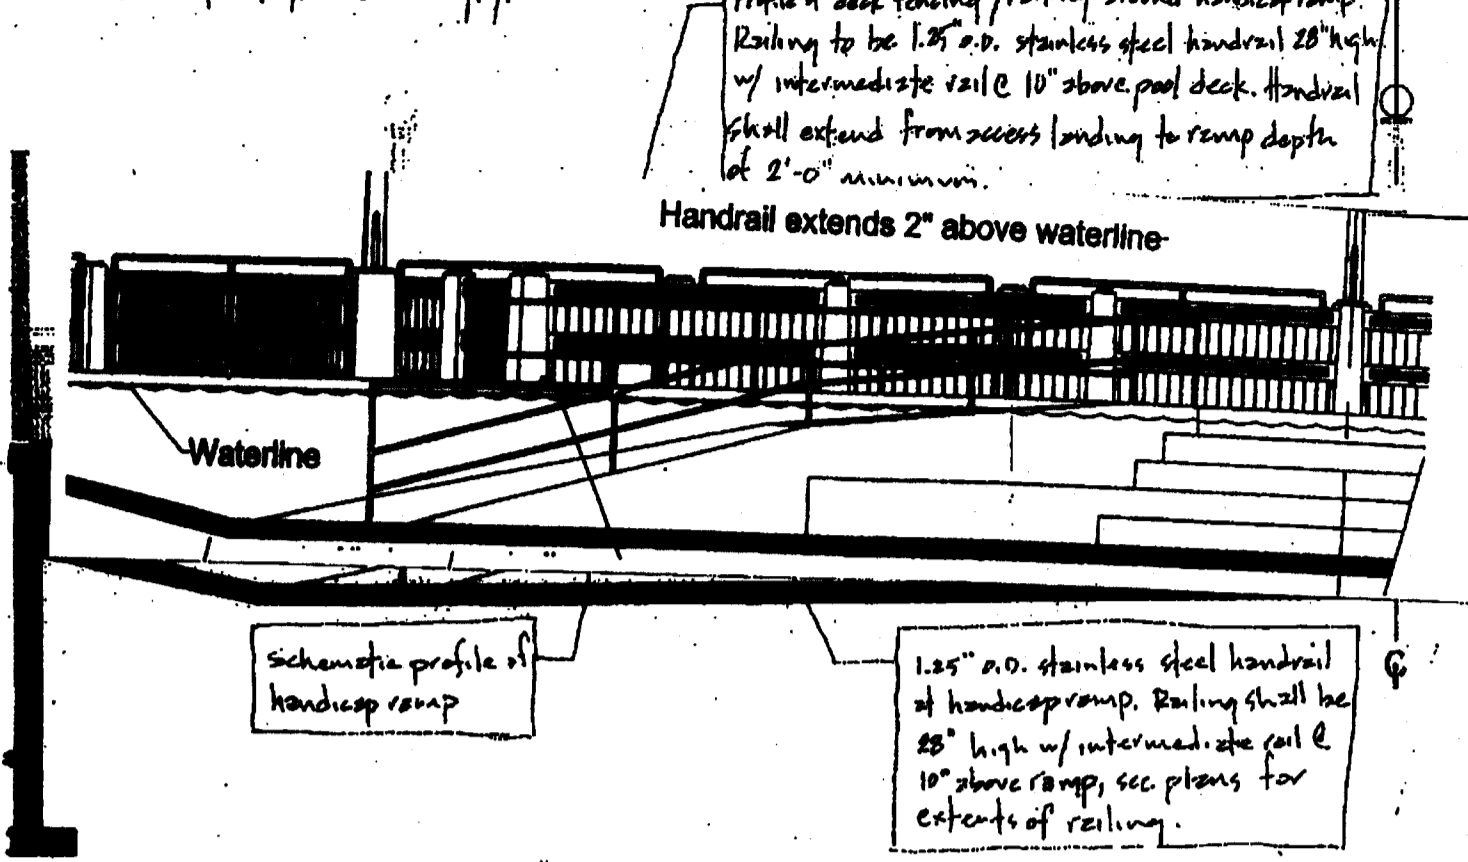 Profile of deck fencing / railing around handicap ramp.
Railing to be 1.25" O.D. stainless steel handrail 28" high
w/ intermediate rail @ 10" above pool deck. Handrail
shall extend from access landing to ramp depth
of 2'-0" minimum.
Handrail extends 2" above waterline
Waterline
Schematic profile of
handicap ramp
1.25" O.D. stainless steel handrail
at handicap ramp. Railing shall be
28" high w/ intermediate rail @
10" above ramp, see plans for
extents of railing.